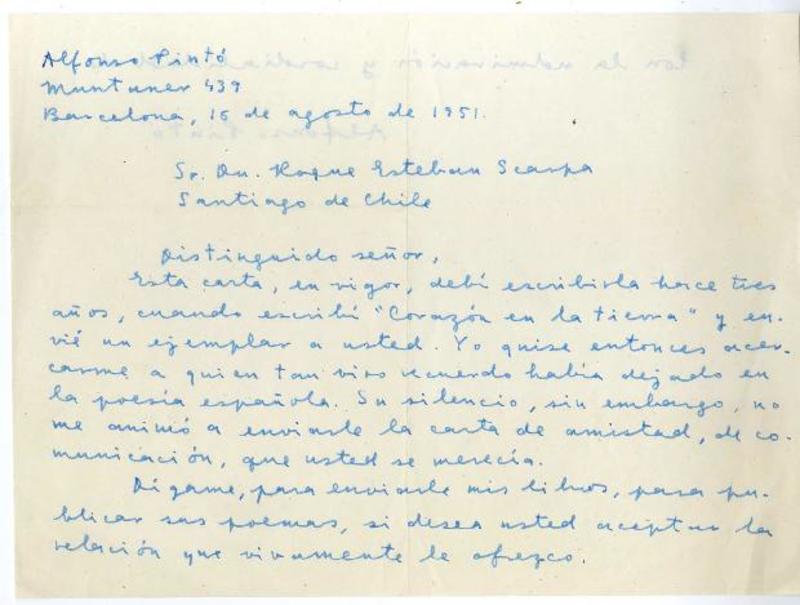 Alfonso Pintó
Muntaner 439
Barcelona, 16 de agosto de 1951.
Sr. Dn. Roque Esteban Scarpa
Santiago de Chile
Distinguido señor,
Esta carta, en vigor, debí escribirla hace tres
años, cuando escribí "Corazón en la tierra" y en-
vié un ejemplar a usted. Yo quise entonces acer-
carme a quien tan vivo recuerdo había dejado en
la poesía española. Su silencio, sin embargo, no
me animó a enviarle la carta de amistad, de co-
municación, que usted se merecía.
Dígame, para enviarle mis libros, para pu-
blicar sus poemas, si desea usted aceptar la
relación que vivamente le ofrezco.